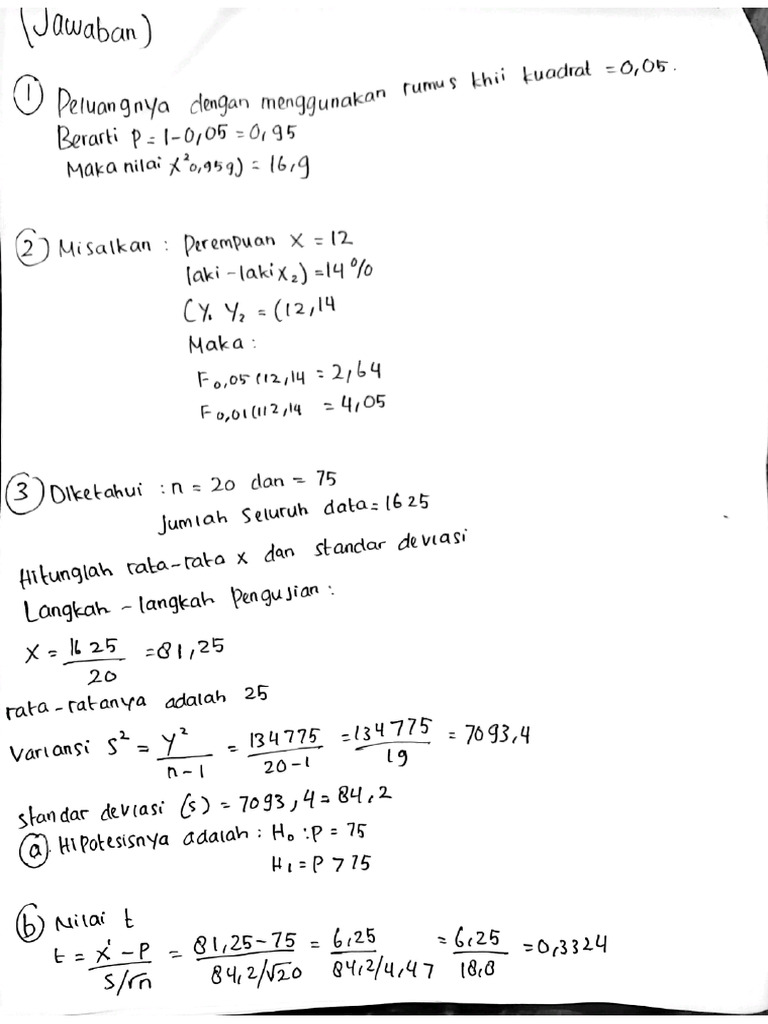 (Jawaban)
① Peluangnya dengan menggunakan rumus khii kuadrat = 0,05.
Berarti P = 1-0,05 = 0,95
Maka nilai X²0,959) = 16,9
② Misalkan : Perempuan X = 12
laki-laki X₂) = 14%
(Y₁ Y₂ = (12,14
Maka :
F₀,₀₅ (12,14 = 2,64
F₀,₀₁(112,14 = 4,05
③ Diketahui : n = 20 dan = 75
Jumlah seluruh data = 1625
Hitunglah rata-rata x dan standar deviasi
Langkah - langkah Pengujian :
X = 1625/20 = 81,25
rata-ratanya adalah 25
Variansi S² = Y²/n-1 = 134775/20-1 = 134775/19 = 7093,4
standar deviasi (s) = 7093,4 = 84,2
ⓐ. Hipotesisnya adalah : H₀ : P = 75
H₁ = P > 75
ⓑ Nilai t
t = x̄ - P/S/√n = 81,25-75/84,2/√20 = 6,25/84,2/4,47 = 6,25/18,8 = 0,3324